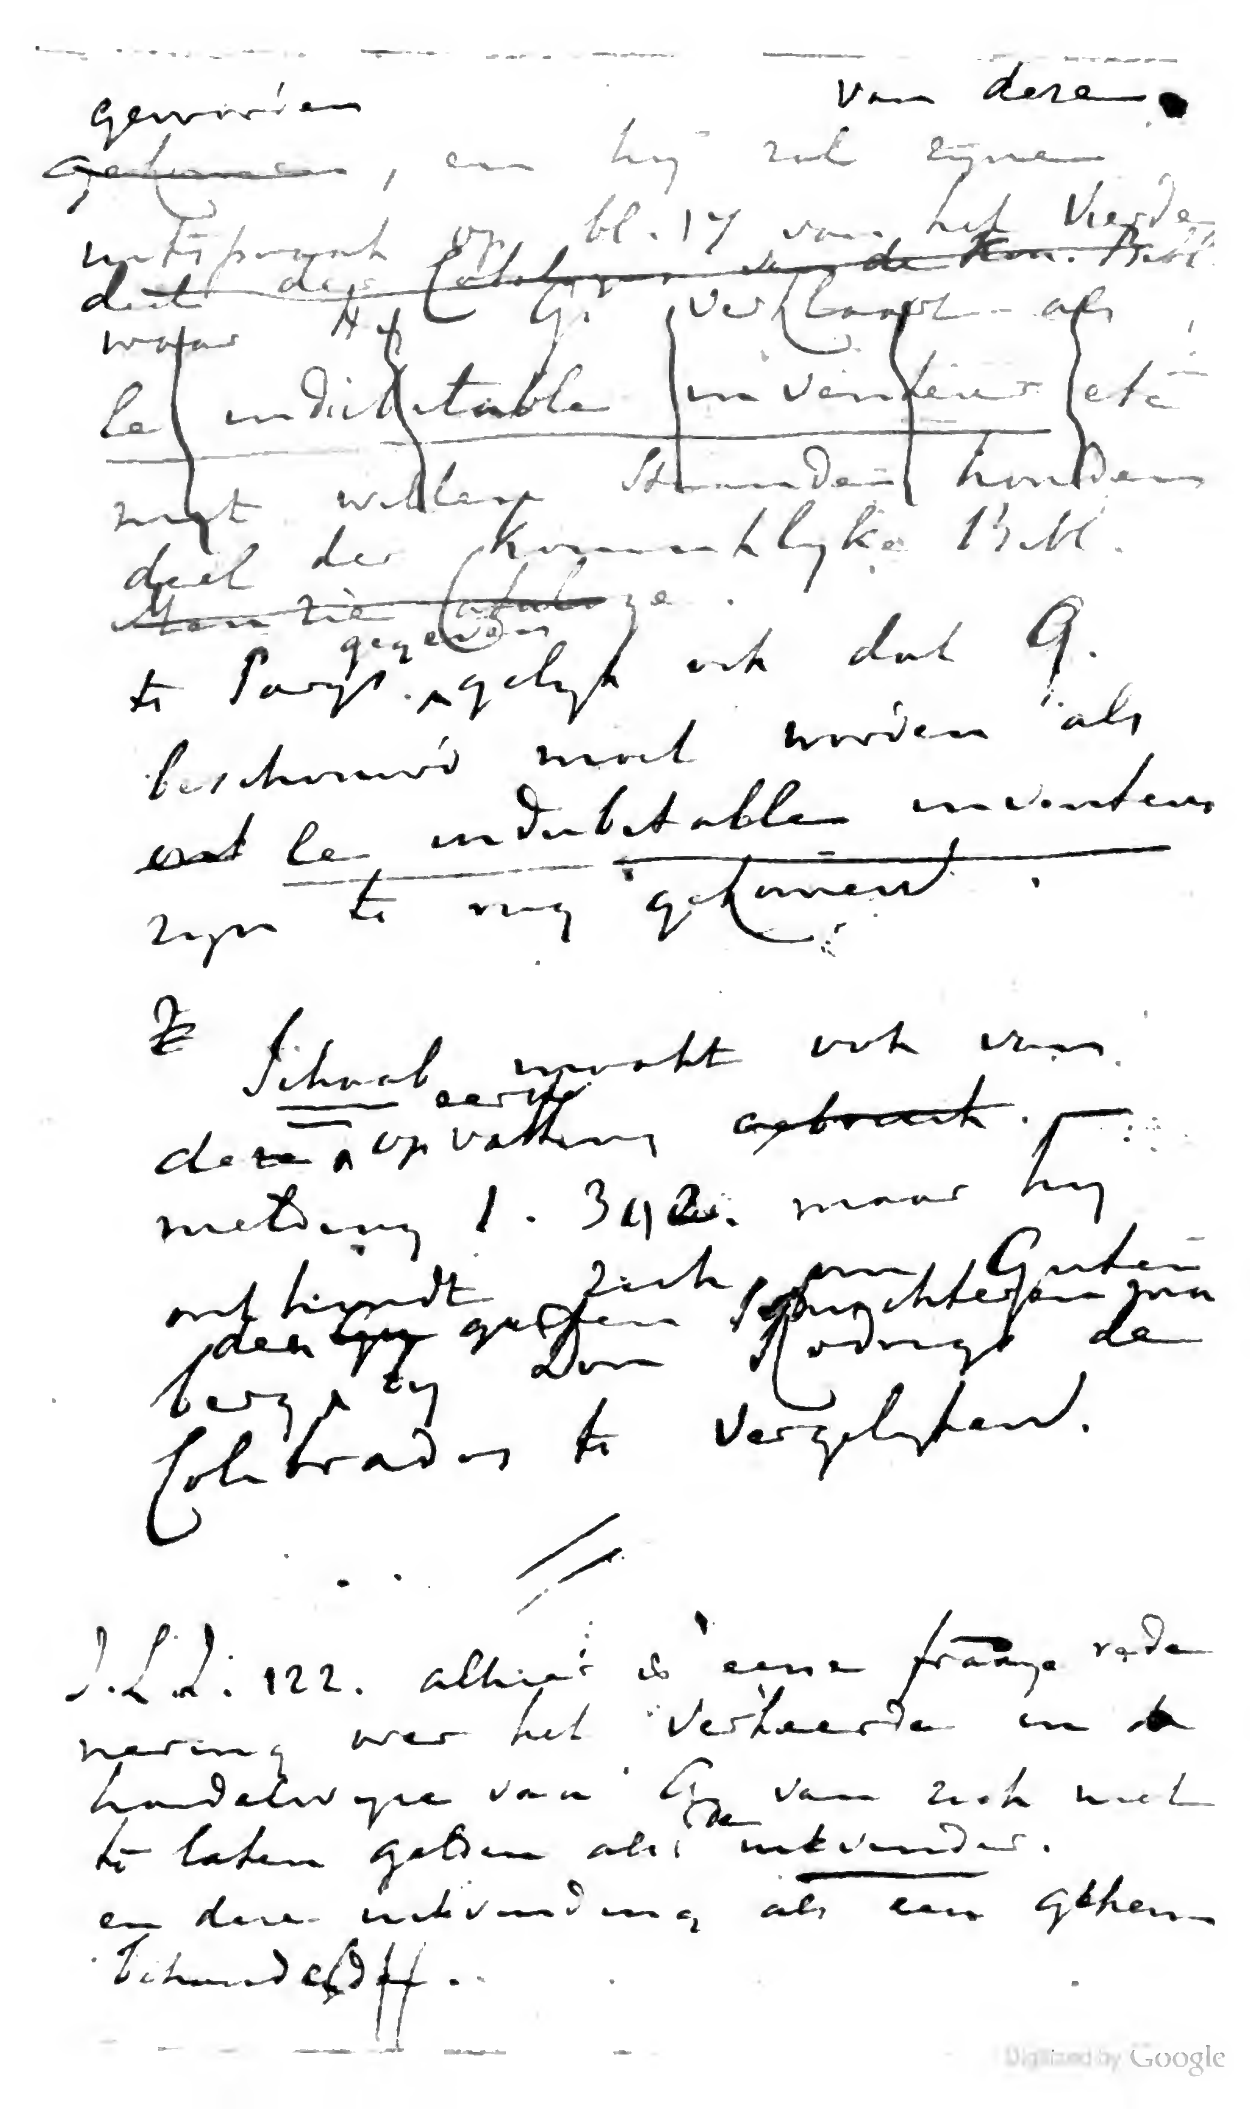 geworden van deze
gekomen, en hij zal zijne
uitspraak op bl. 17 van het Vierde
deel des Catalogus van de Kon. Bibl.
waar Hij G. verklaart als
le indubitable inventeur etc
niet willen staande houden
deel der Koninklijke Bibl.
Men zie Cataloge.
gegeven
te Parijs. gelijk ook dat G.
beschouwd moet worden als
le indubitable inventeur
zijn te rug gekomen.
Schaab maakt ook van
eerste
deze opvatting gebruik.
melding 1. 392. maar hij
onthoudt zich, om Guten
den grooten
berg, bij Don Rodrigo de
Colibrados te vergelijken.
J.L.J. 122. alhier is eene fraaye rede
nering over het verkeerde in de
handelwijze van G. van zich niet
den
te laten gelden als uitvinder.
en deze uitvinding als een geheim
behandeld
Digitized by Google